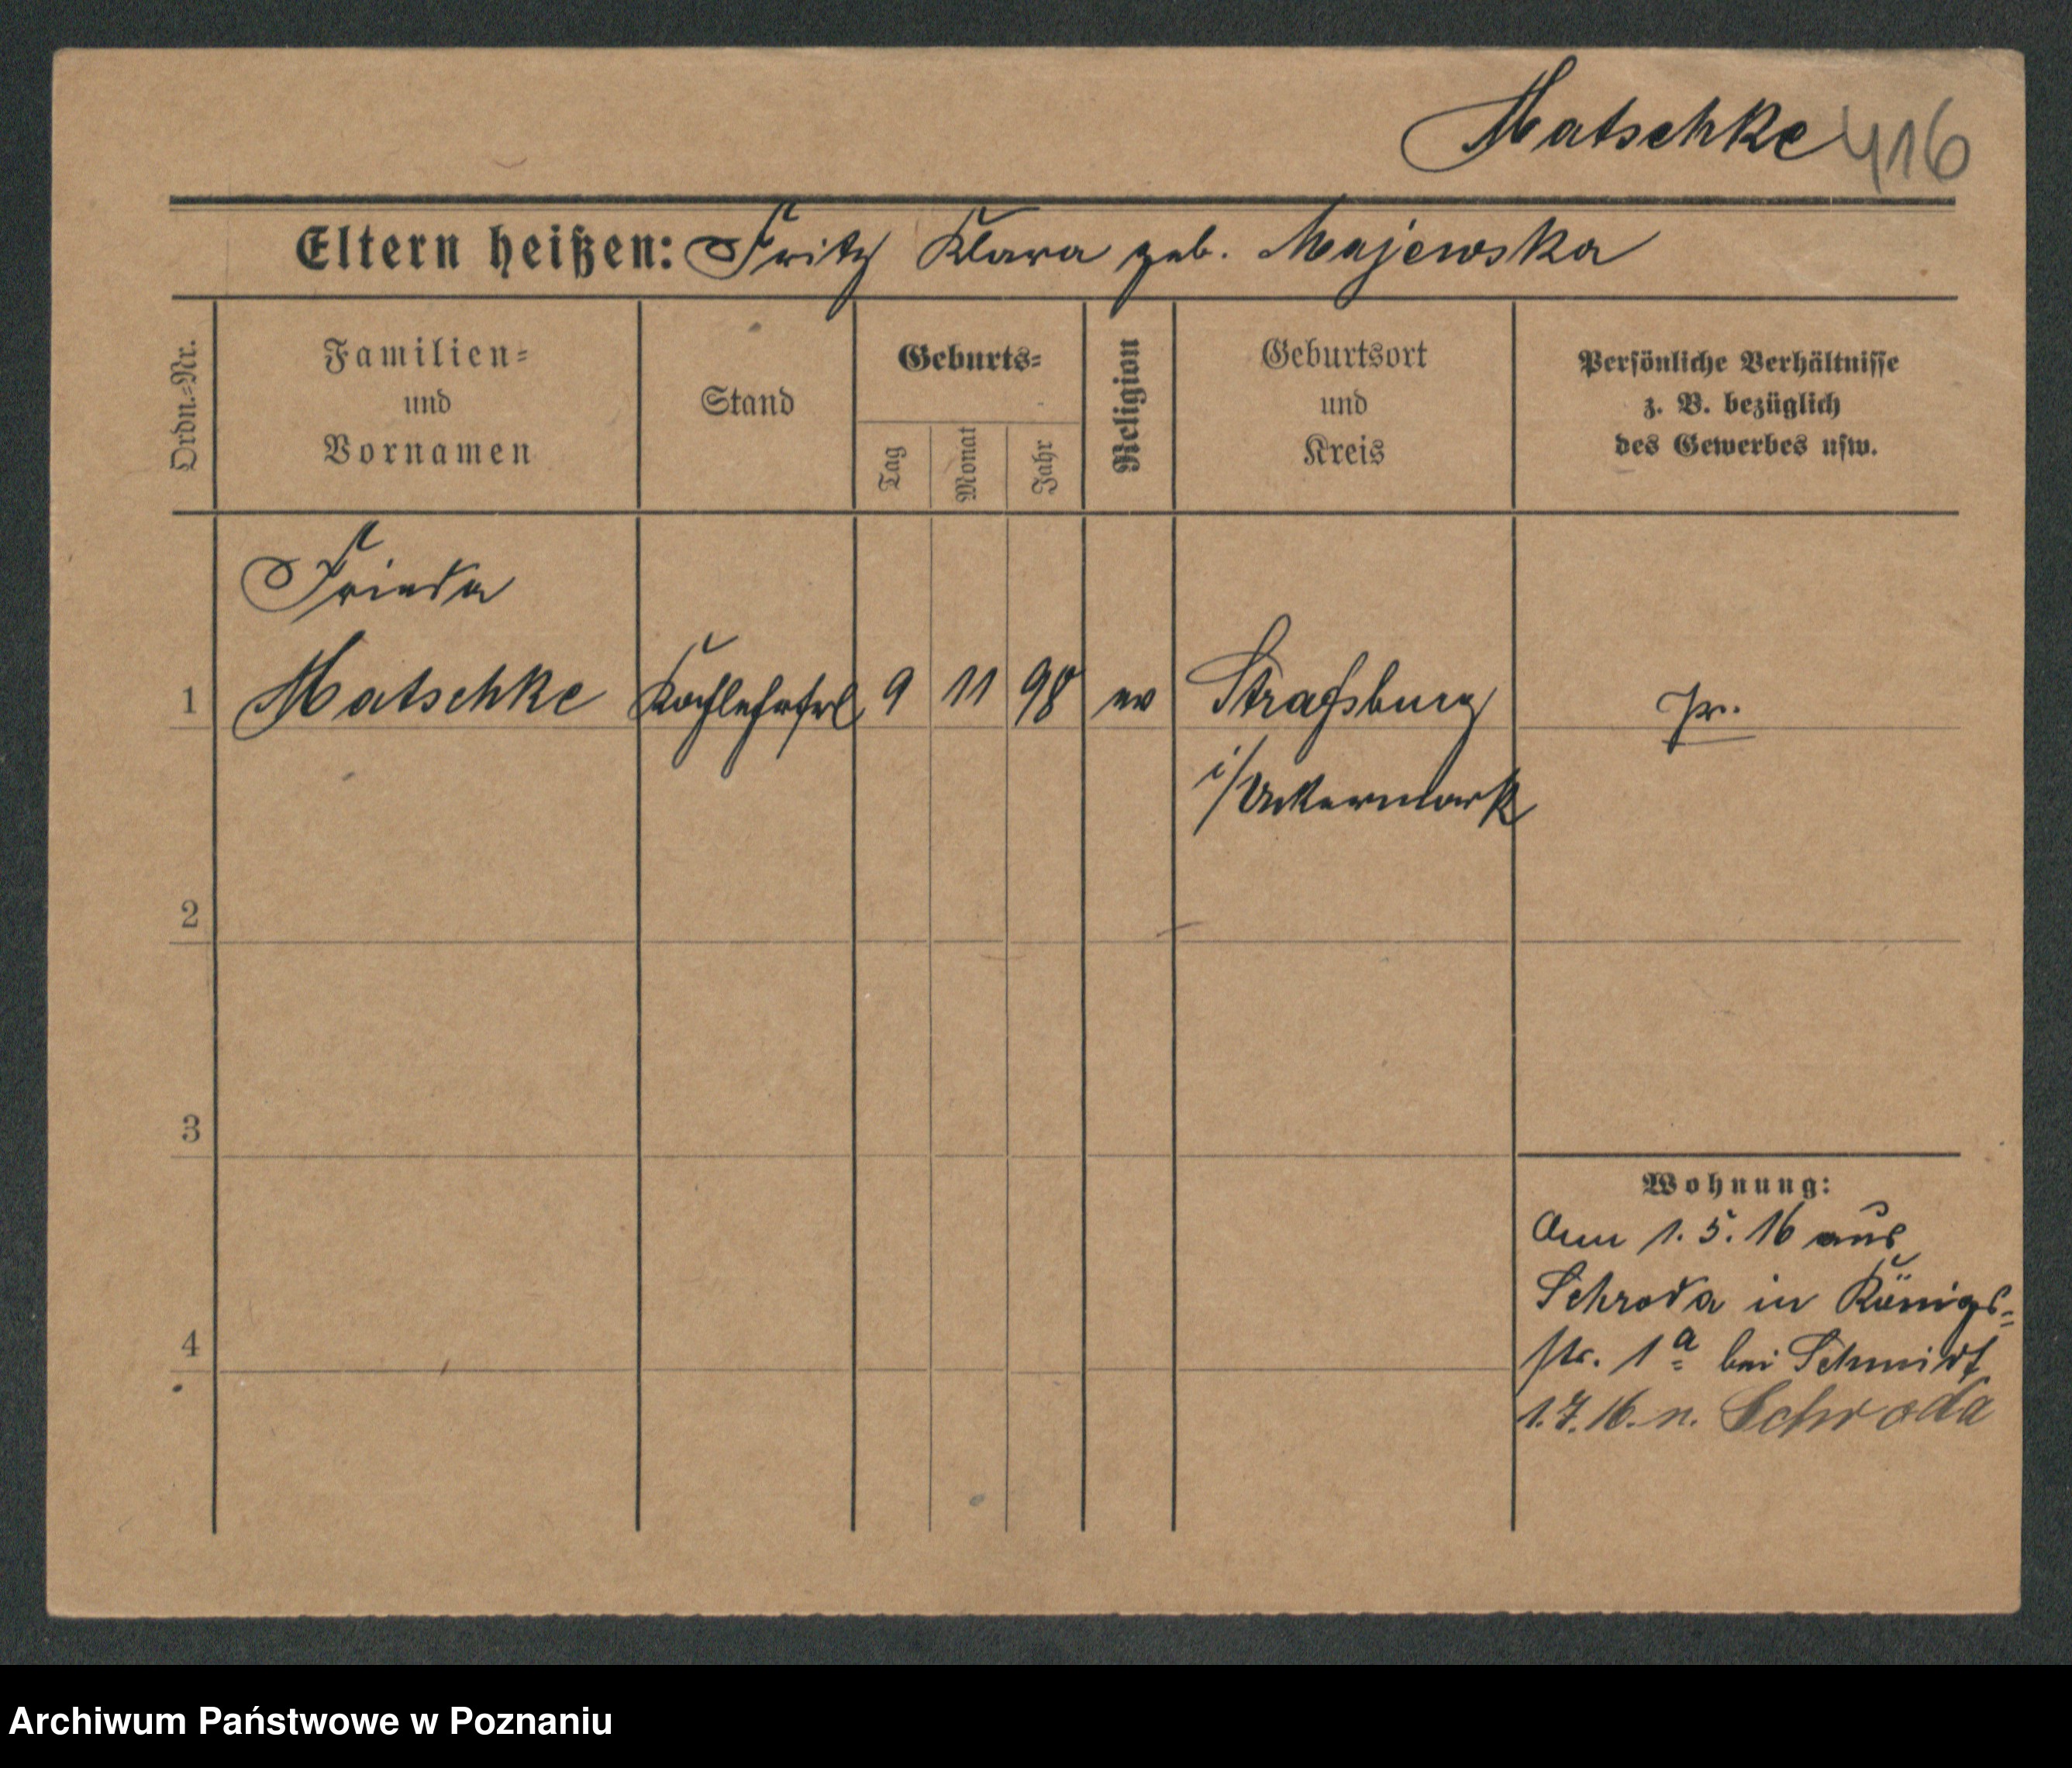 Matschke 416
Eltern heißen: Fritz Klara geb. Majewska
Ordn.-Nr.
Familien-
und
Vornamen
Stand
Geburts-
Tag
Monat
Jahr
Religion
Geburtsort
und
Kreis
Persönliche Verhältnisse
z. B. bezüglich
des Gewerbes usw.
Frieda
1 Matschke 9 11 98 ev Straßburg pr.
i/Uckermark
2
3
Wohnung:
Am 1.5.16 aus
Schroda in Königs-
4
str. 1a bei Schmidt
1.7.16. n. Schroda
Archiwum Państwowe w Poznaniu